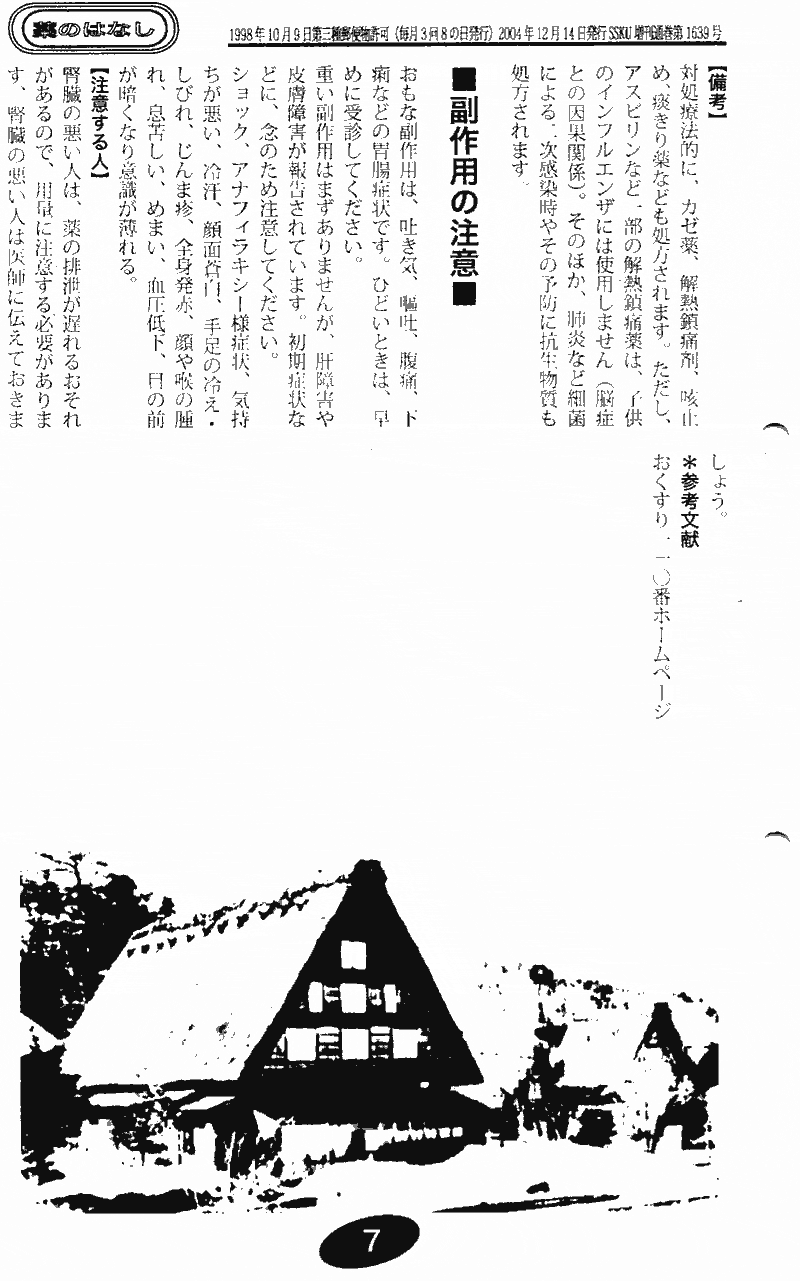 薬のはなし
1998年10月9日第三種郵便物許可（毎月3回8の日発行）2004年12月14日発行SSKU増刊通巻第1639号
【備考】
対処療法的に、カゼ薬、解熱鎮痛剤、咳止
め、痰きり薬なども処方されます。ただし、
アスピリンなど一部の解熱鎮痛薬は、子供
のインフルエンザには使用しません（脳症
との因果関係）。そのほか、肺炎など細菌
による二次感染時やその予防に抗生物質も
処方されます。
■副作用の注意■
おもな副作用は、吐き気、嘔吐、腹痛、下
痢などの胃腸症状です。ひどいときは、早
めに受診してください。
重い副作用はまずありませんが、肝障害や
皮膚障害が報告されています。初期症状な
どに、念のため注意してください。
ショック、アナフィラキシー様症状、気持
ちが悪い、冷汗、顔面蒼白、手足の冷え・
しびれ、じんま疹、全身発赤、顔や喉の腫
れ、息苦しい、めまい、血圧低下、目の前
が暗くなり意識が薄れる。
【注意する人】
腎臓の悪い人は、薬の排泄が遅れるおそれ
があるので、用量に注意する必要がありま
す、腎臓の悪い人は医師に伝えておきま
しょう。
＊参考文献
おくすり一一〇番ホームページ
7